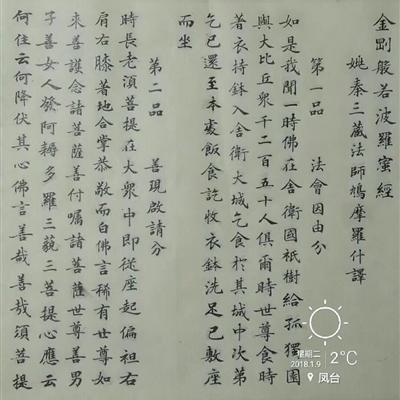 金剛般若波羅蜜經
姚秦三藏法師鳩摩羅什譯
第一品 法會因由分
如是我聞一時佛在舍衛國祇樹給孤獨園
與大比丘眾千二百五十人俱爾時世尊食時
著衣持鉢入舍衛大城乞食於其城中次第
乞已還至本處飯食訖收衣鉢洗足已敷座
而坐
第二品 善現啟請分
時長老須菩提在大眾中即從座起偏袒右
肩右膝著地合掌恭敬而白佛言稀有世尊如
來善護念諸菩薩善付囑諸菩薩世尊善男
子善女人發阿耨多羅三藐三菩提心應云
何住云何降伏其心佛言善哉善哉須菩提
星期二
2018.1.9
2°C
凤台